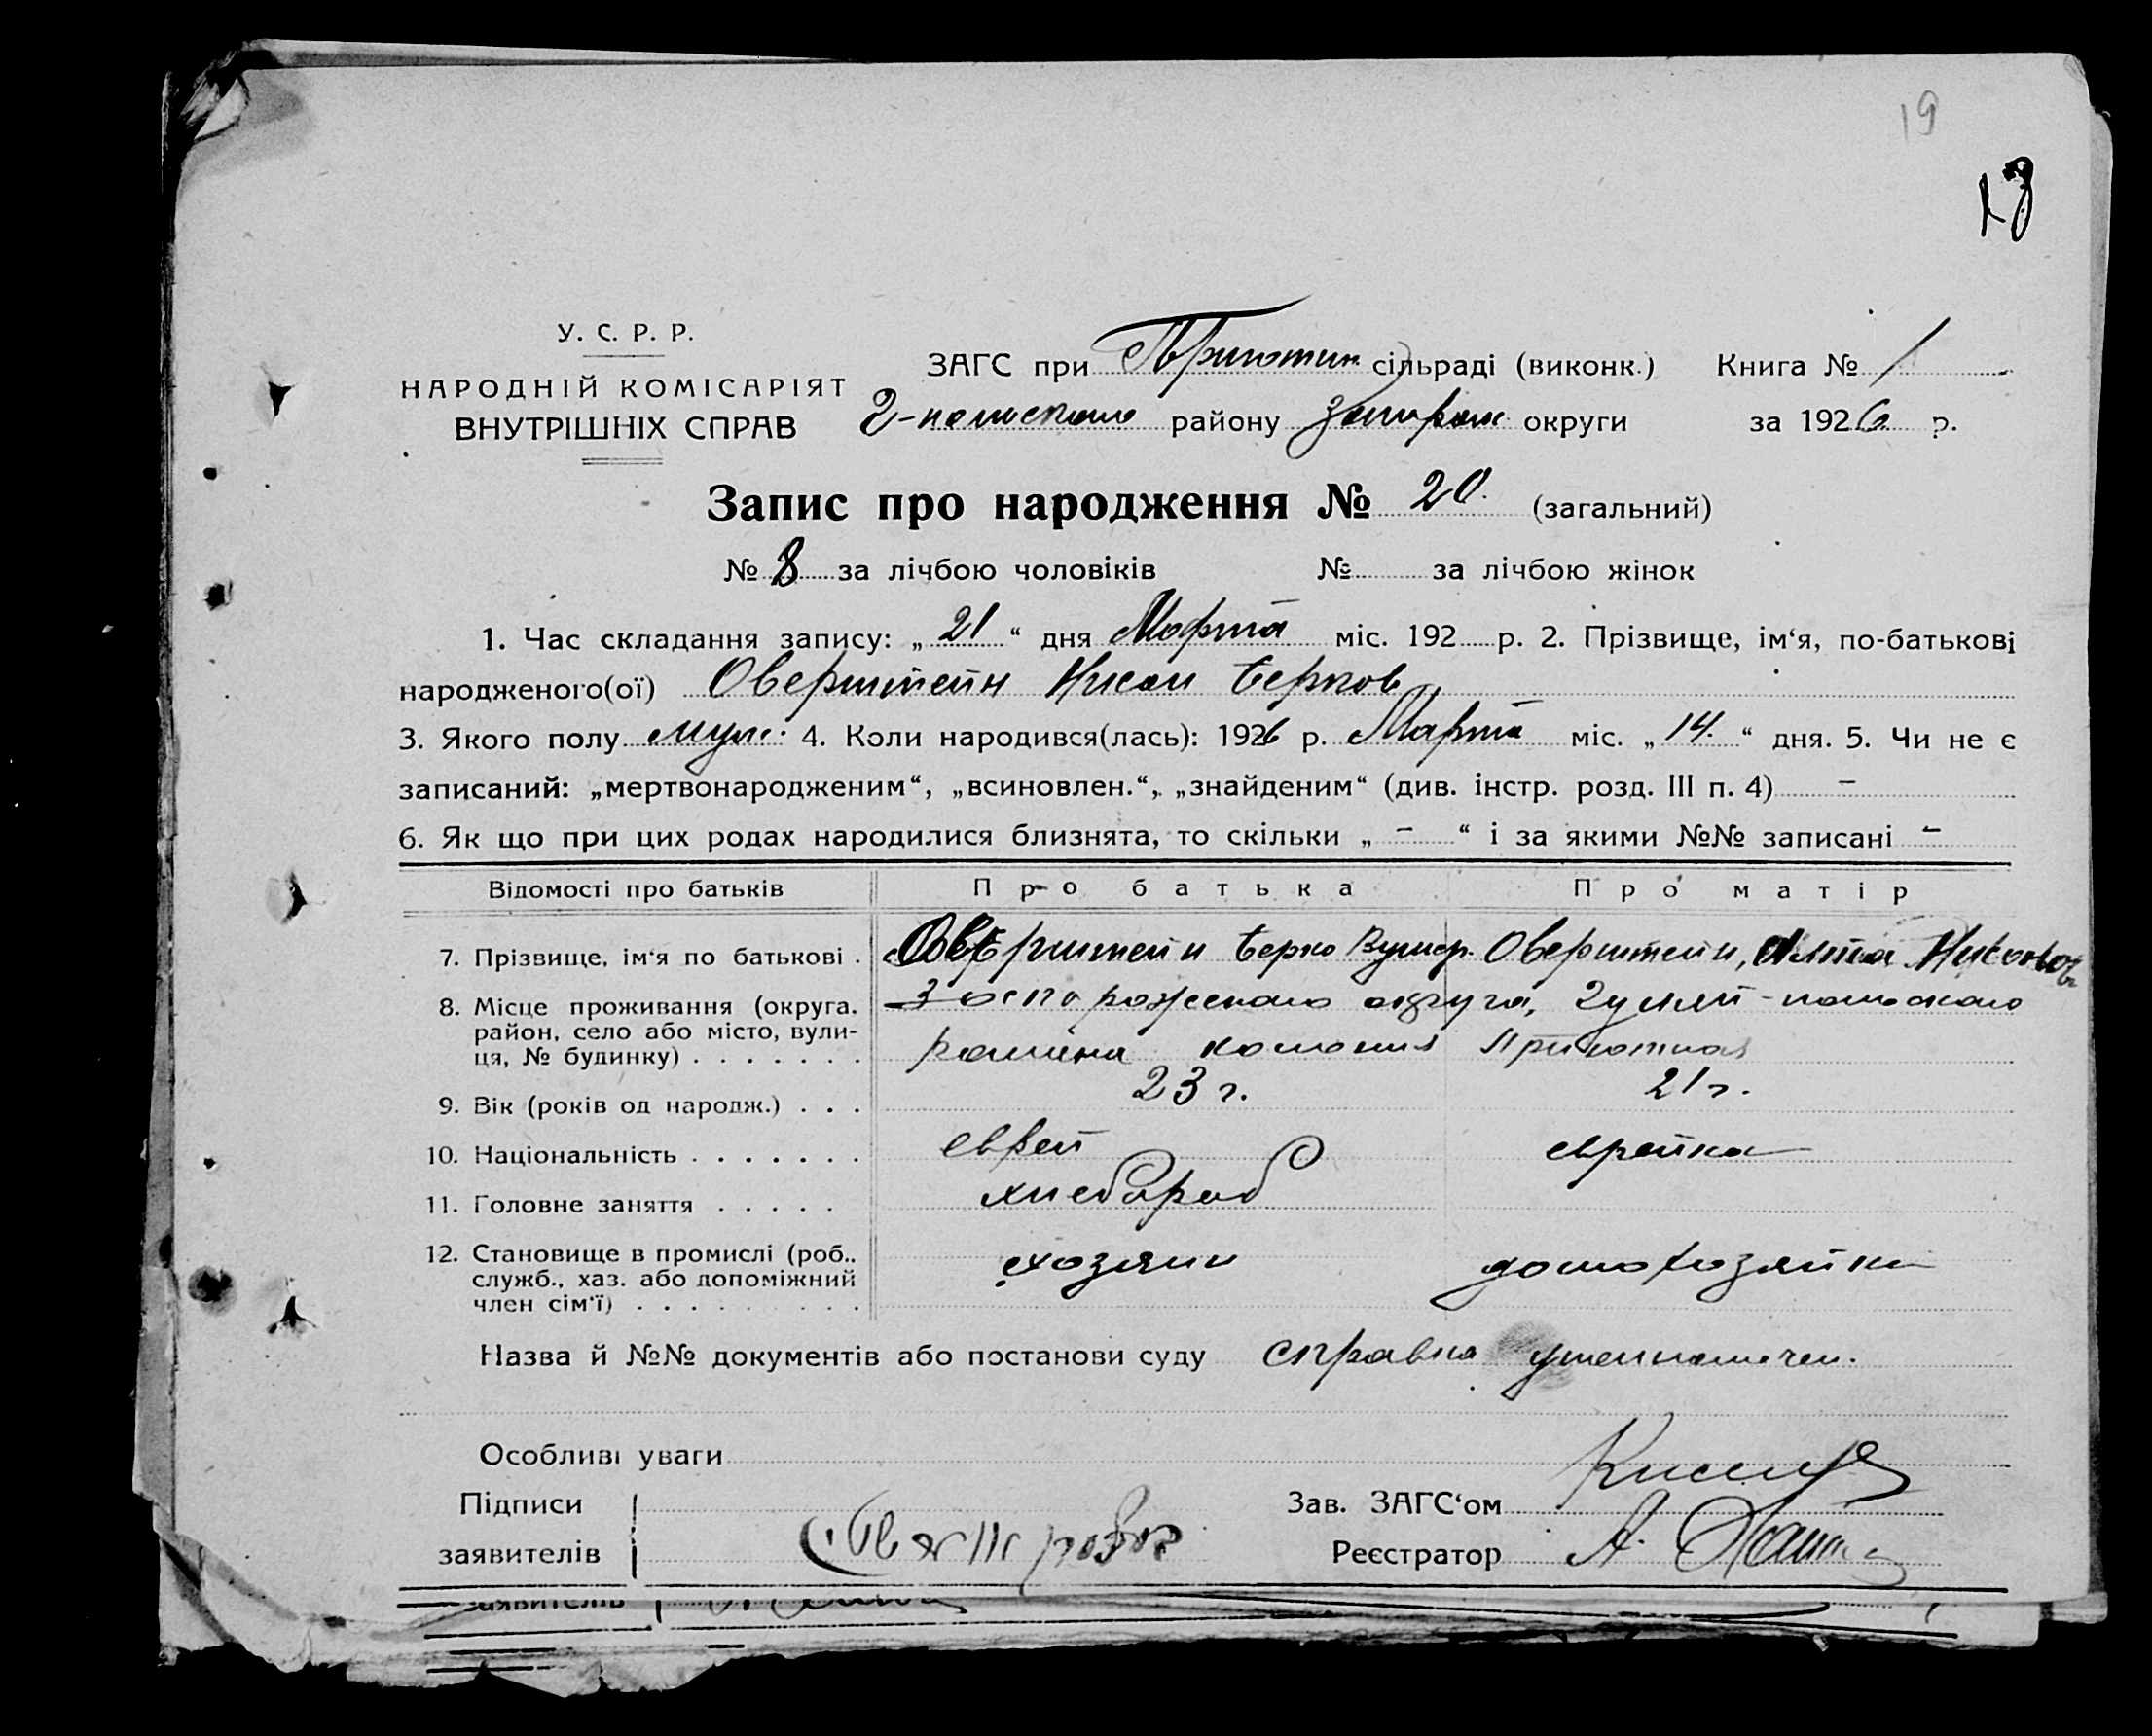 19
У. С. Р. Р.
НАРОДНІЙ КОМІСАРІЯТ
ВНУТРІШНІХ СПРАВ
ЗАГС при Приютин сільраді (виконк.) Книга № 1
Г-польского району Запорож округи за 1926 р.
Запис про народження № 20 (загальний)
№ 8 за лічбою чоловіків № за лічбою жінок
1. Час складання запису: „ 21 “ дня Марта міс. 192 р. 2. Прізвище, ім‘я, по-батькові
народженого(ої) Оверштейн Нисан Берков
3. Якого полу муж. 4. Коли народився(лась): 1926 р. Марта міс. „ 14 “ дня. 5. Чи не є
записаний: „мертвонародженим“, „всиновлен.“, „знайденим“ (див. інстр. розд. III п. 4) –
6. Як що при цих родах народилися близнята, то скільки „ – “ і за якими №№ записані –
Відомості про батьків Про батька Про матір
7. Прізвище, ім‘я по батькові . Оверштейн Берко Оверштейн,
8. Місце проживання (округа, Запорожского округа, Гуляй-польского
район, село або місто, вули-
ця, № будинку) . . . . . . . района колония Приютная
9. Вік (років од народж.) . . . 23 г. 21 г.
10. Національність . . . . . . . еврей еврейка
11. Головне заняття . . . . . хлебороб
12. Становище в промислі (роб., хозяин домохозяйка
служб., хаз. або допоміжний
член сім‘ї) . . . . . . . . .
Назва й №№ документів або постанови суду справка
Особливі уваги
Підписи
Зав. ЗАГС‘ом
заявителів
Реєстратор А.
заявителів